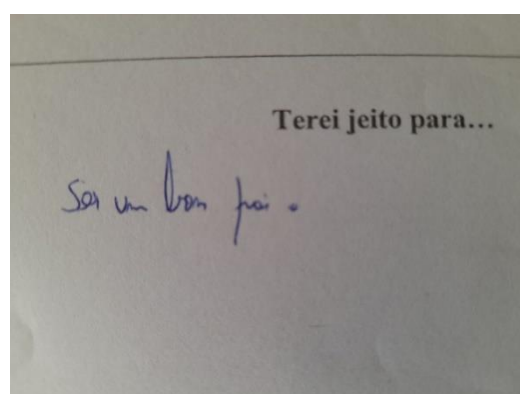 Terei jeito para...
Ser um bom pai.